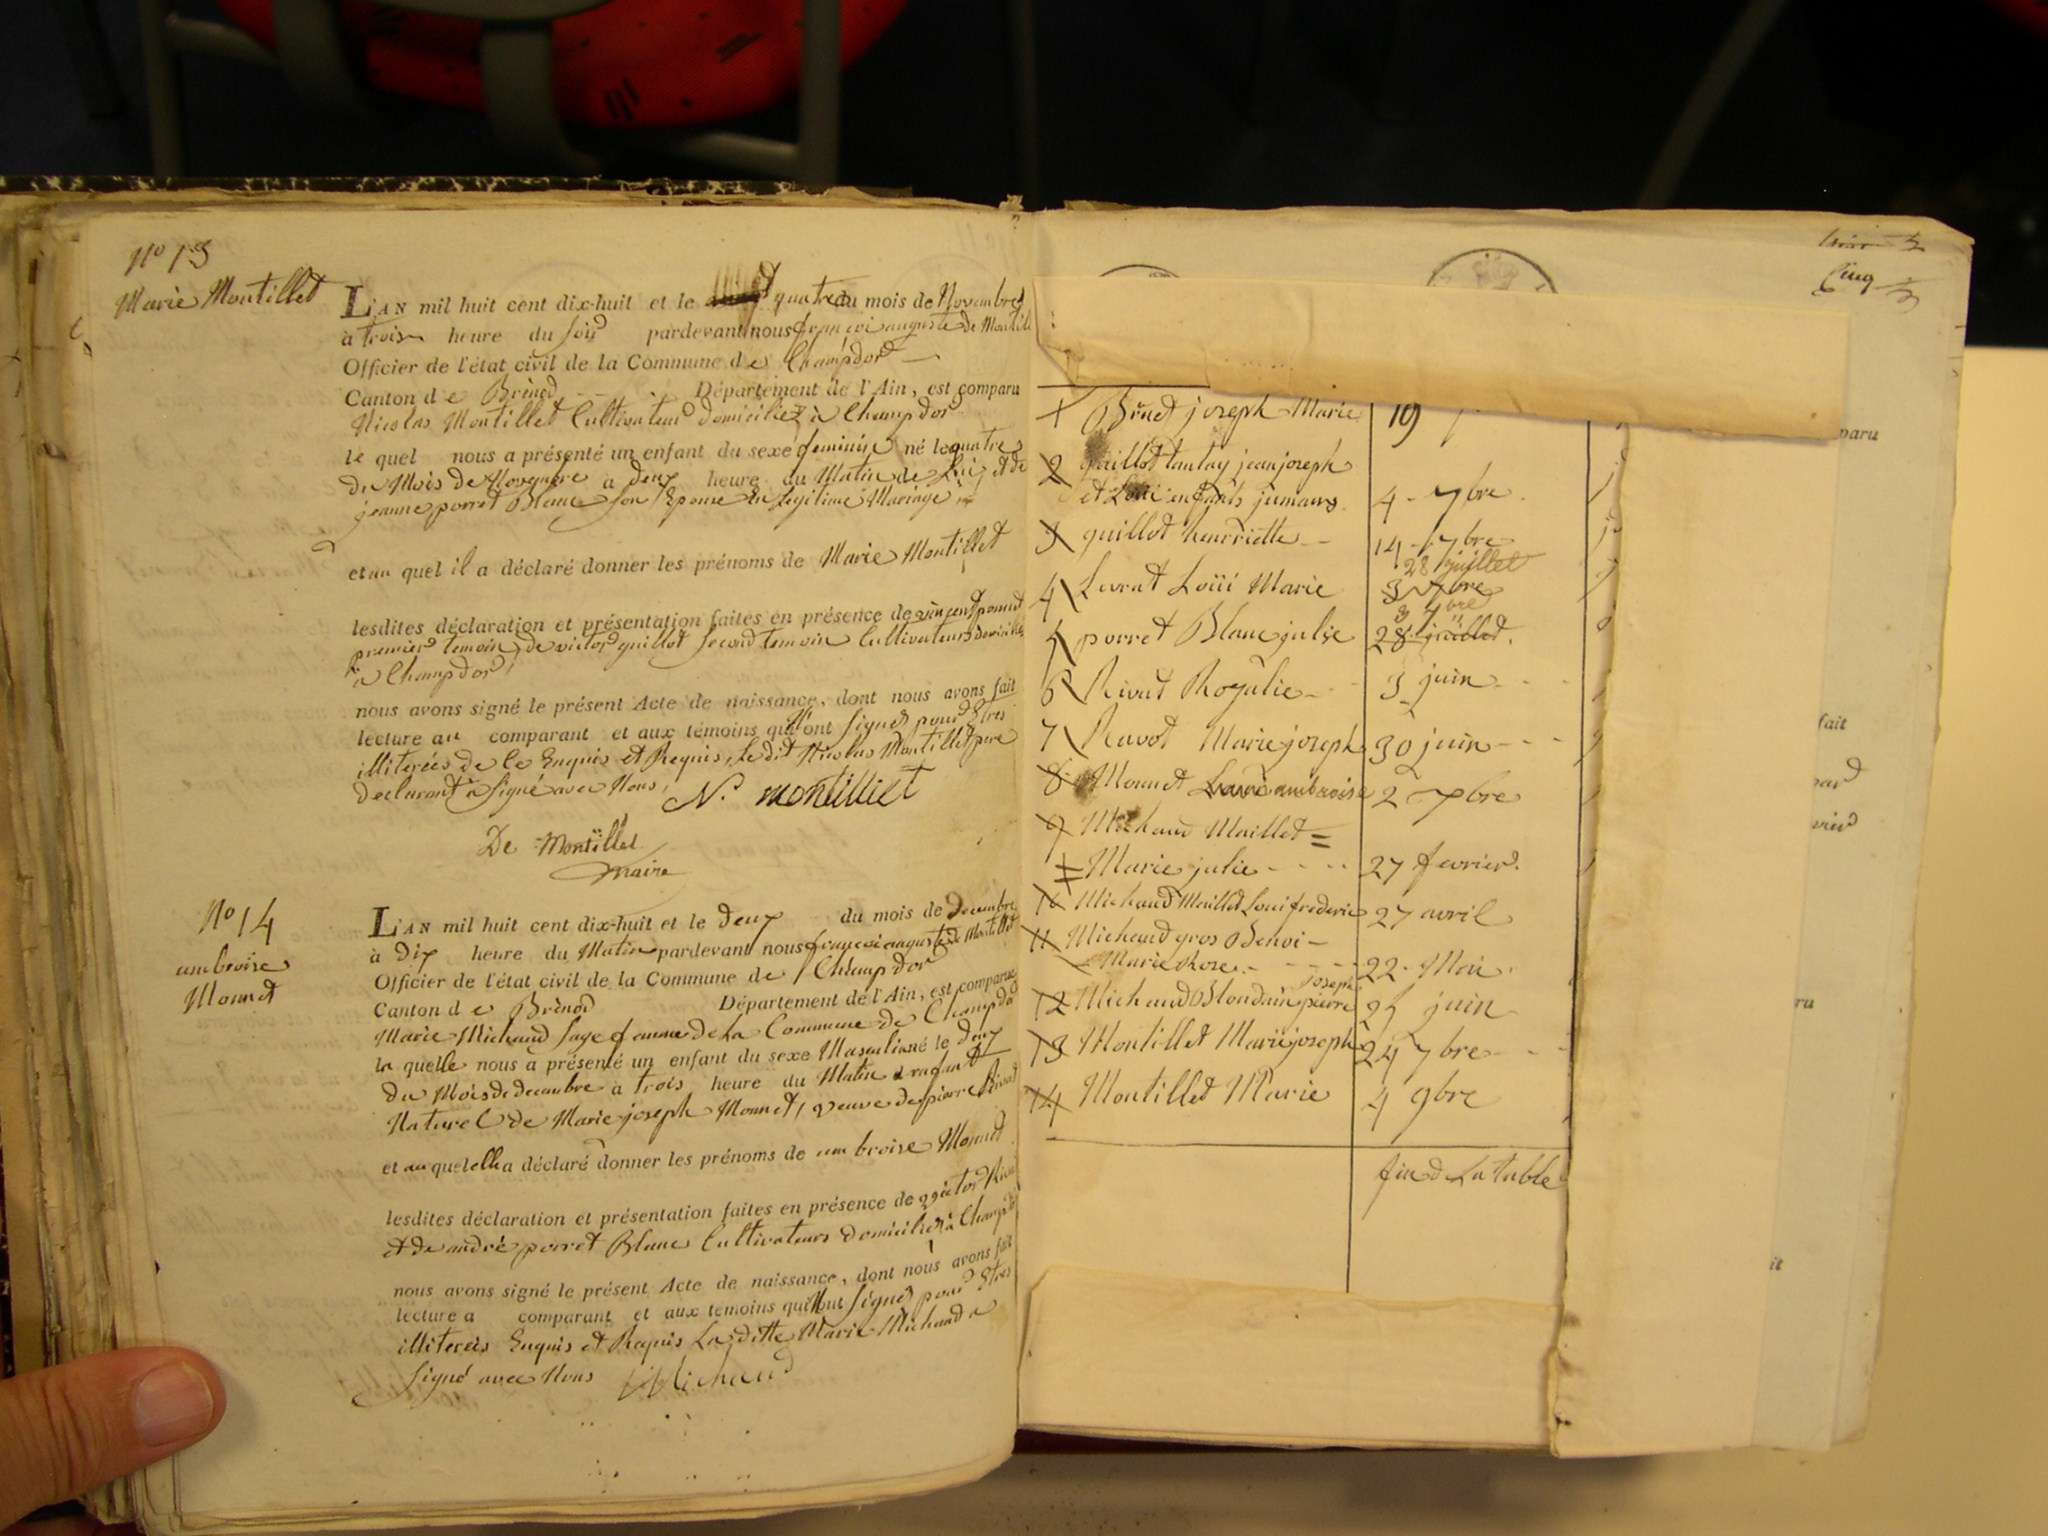 No 13
Marie Montillet
L'AN mil huit cent dix-huit et le quatre du mois de Novembre
à trois heure du soir pardevant nous françoi auguste de Montill
Officier de l'état civil de la Commune de Champdor
Canton de Brénod Département de l'Ain, est comparu
Nicolas Montillet Cultivateur domicilié à Champdor
le quel nous a présenté un enfant du sexe feminin né le quatre
du Mois de Novembre à deux heure du Matin de Lui et de
jeanne porret Blanc son Epouse En Legitime Mariage
et au quel il a déclaré donner les prénoms de Marie Montillet
lesdites déclaration et présentation faites en présence de vincent
premier temoin, de victor guillot second temoin Cultivateurs
à Champdor
nous avons signé le présent Acte de naissance, dont nous avons fait
lecture au comparant et aux témoins qui n'ont signés pour Etres
illiterées de Ce Enquis et Requis, Le dit Nicolas Montillet pere
declarant à signé avec Nous,
N. montilliet
De Montillet
maire
No 14
ambroise
Monnet
L'AN mil huit cent dix-huit et le deux du mois de Decembre
à dix heure du Matin pardevant nous françoi auguste de Montillet
Officier de l'état civil de la Commune de Champdor
Canton de Brénod Département de l'Ain, est comparue
Marie Michaud sage femme de La Commune de Champdor
la quelle nous a présenté un enfant du sexe Masculin né le deux
du Mois de decembre à trois heure du Matin enfant
Naturel de Marie joseph Monnet, veuve de pierre Rivat
et au quel elle a déclaré donner les prénoms de ambroise Monnet
lesdites déclaration et présentation faites en présence de victor
et de andré porret Blanc Cultivateurs domiciliés à Champdor
nous avons signé le présent Acte de naissance, dont nous avons fait
lecture a comparant et aux temoins qui n'ont signés pour Etres
illiterées Enquis et Requis La ditte Marie Michaud a
signé avec Nous Michaud
Cinq
1 Brunet joseph Marie 19
2 guillot tantay jean joseph
et Loui enfants jumaus. 4 - 7bre
3 guillot henriette 14 - 7bre
28 juillet
4 Livrat Loüi Marie 3 7bre
3 7bre
5 porret Blanc julie 28 juillet.
6 Rivat Rosalie 3 juin
7 Ravot Marie joseph 30 juin
8 Monnet ambroise 2 Xbre
9 Michaud Maillet =
= Marie julie 27 fevrier.
10 Michaud Maillet Loui frederic 27 avril
11 Michaud gros Benoi -
Marie Rose 22 Mai
joseph
12 Michaud Blondain pierre 25 juin
13 Montillet Marie joseph 24 7bre
14 Montillet Marie 4 9bre
fin de La table
paru
fait
ru
it